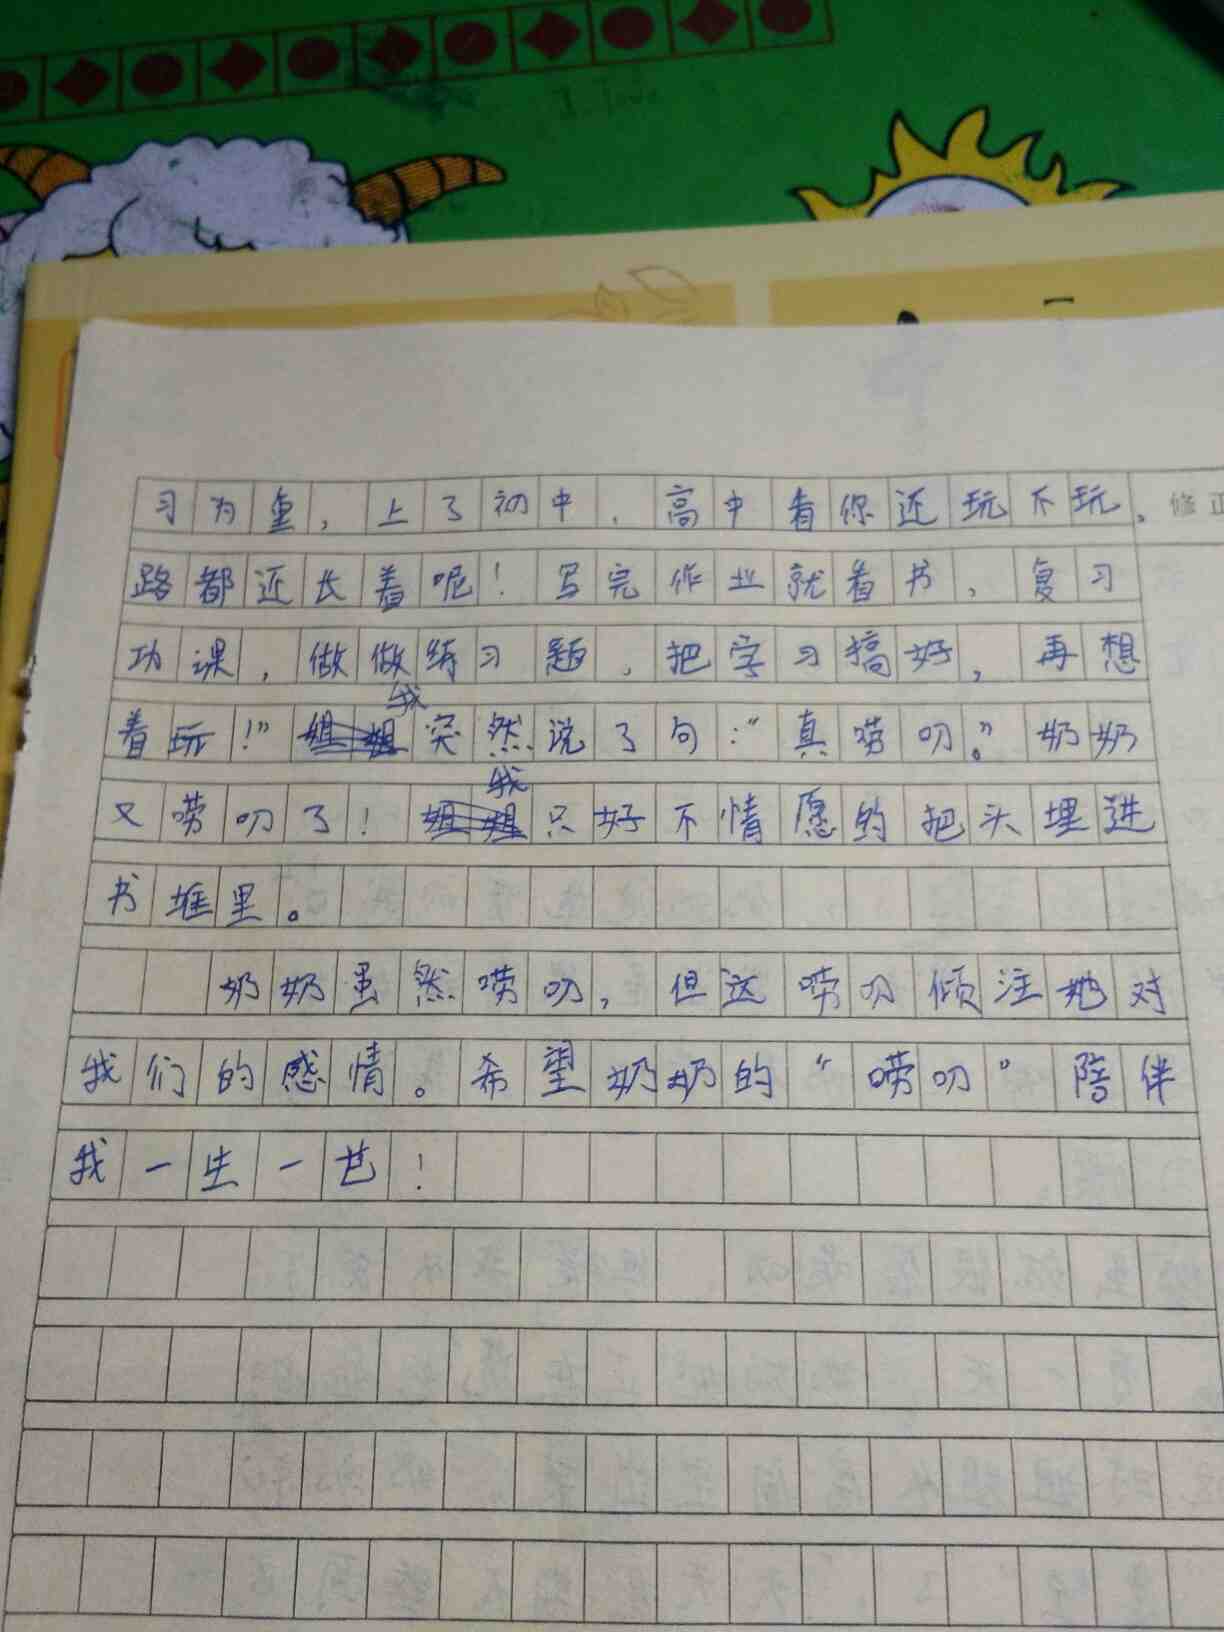 习为重，上了初中、高中看你还玩不玩。修正
路都还长着呢！写完作业就看书，复习
功课，做做练习题，把学习搞好，再想
着玩！”我突然说了句：“真唠叨。”奶奶
又唠叨了！我只好不情愿的把头埋进
书堆里。
奶奶虽然唠叨，但这唠叨倾注她对
我们的感情。希望奶奶的“唠叨”陪伴
我一生一世！